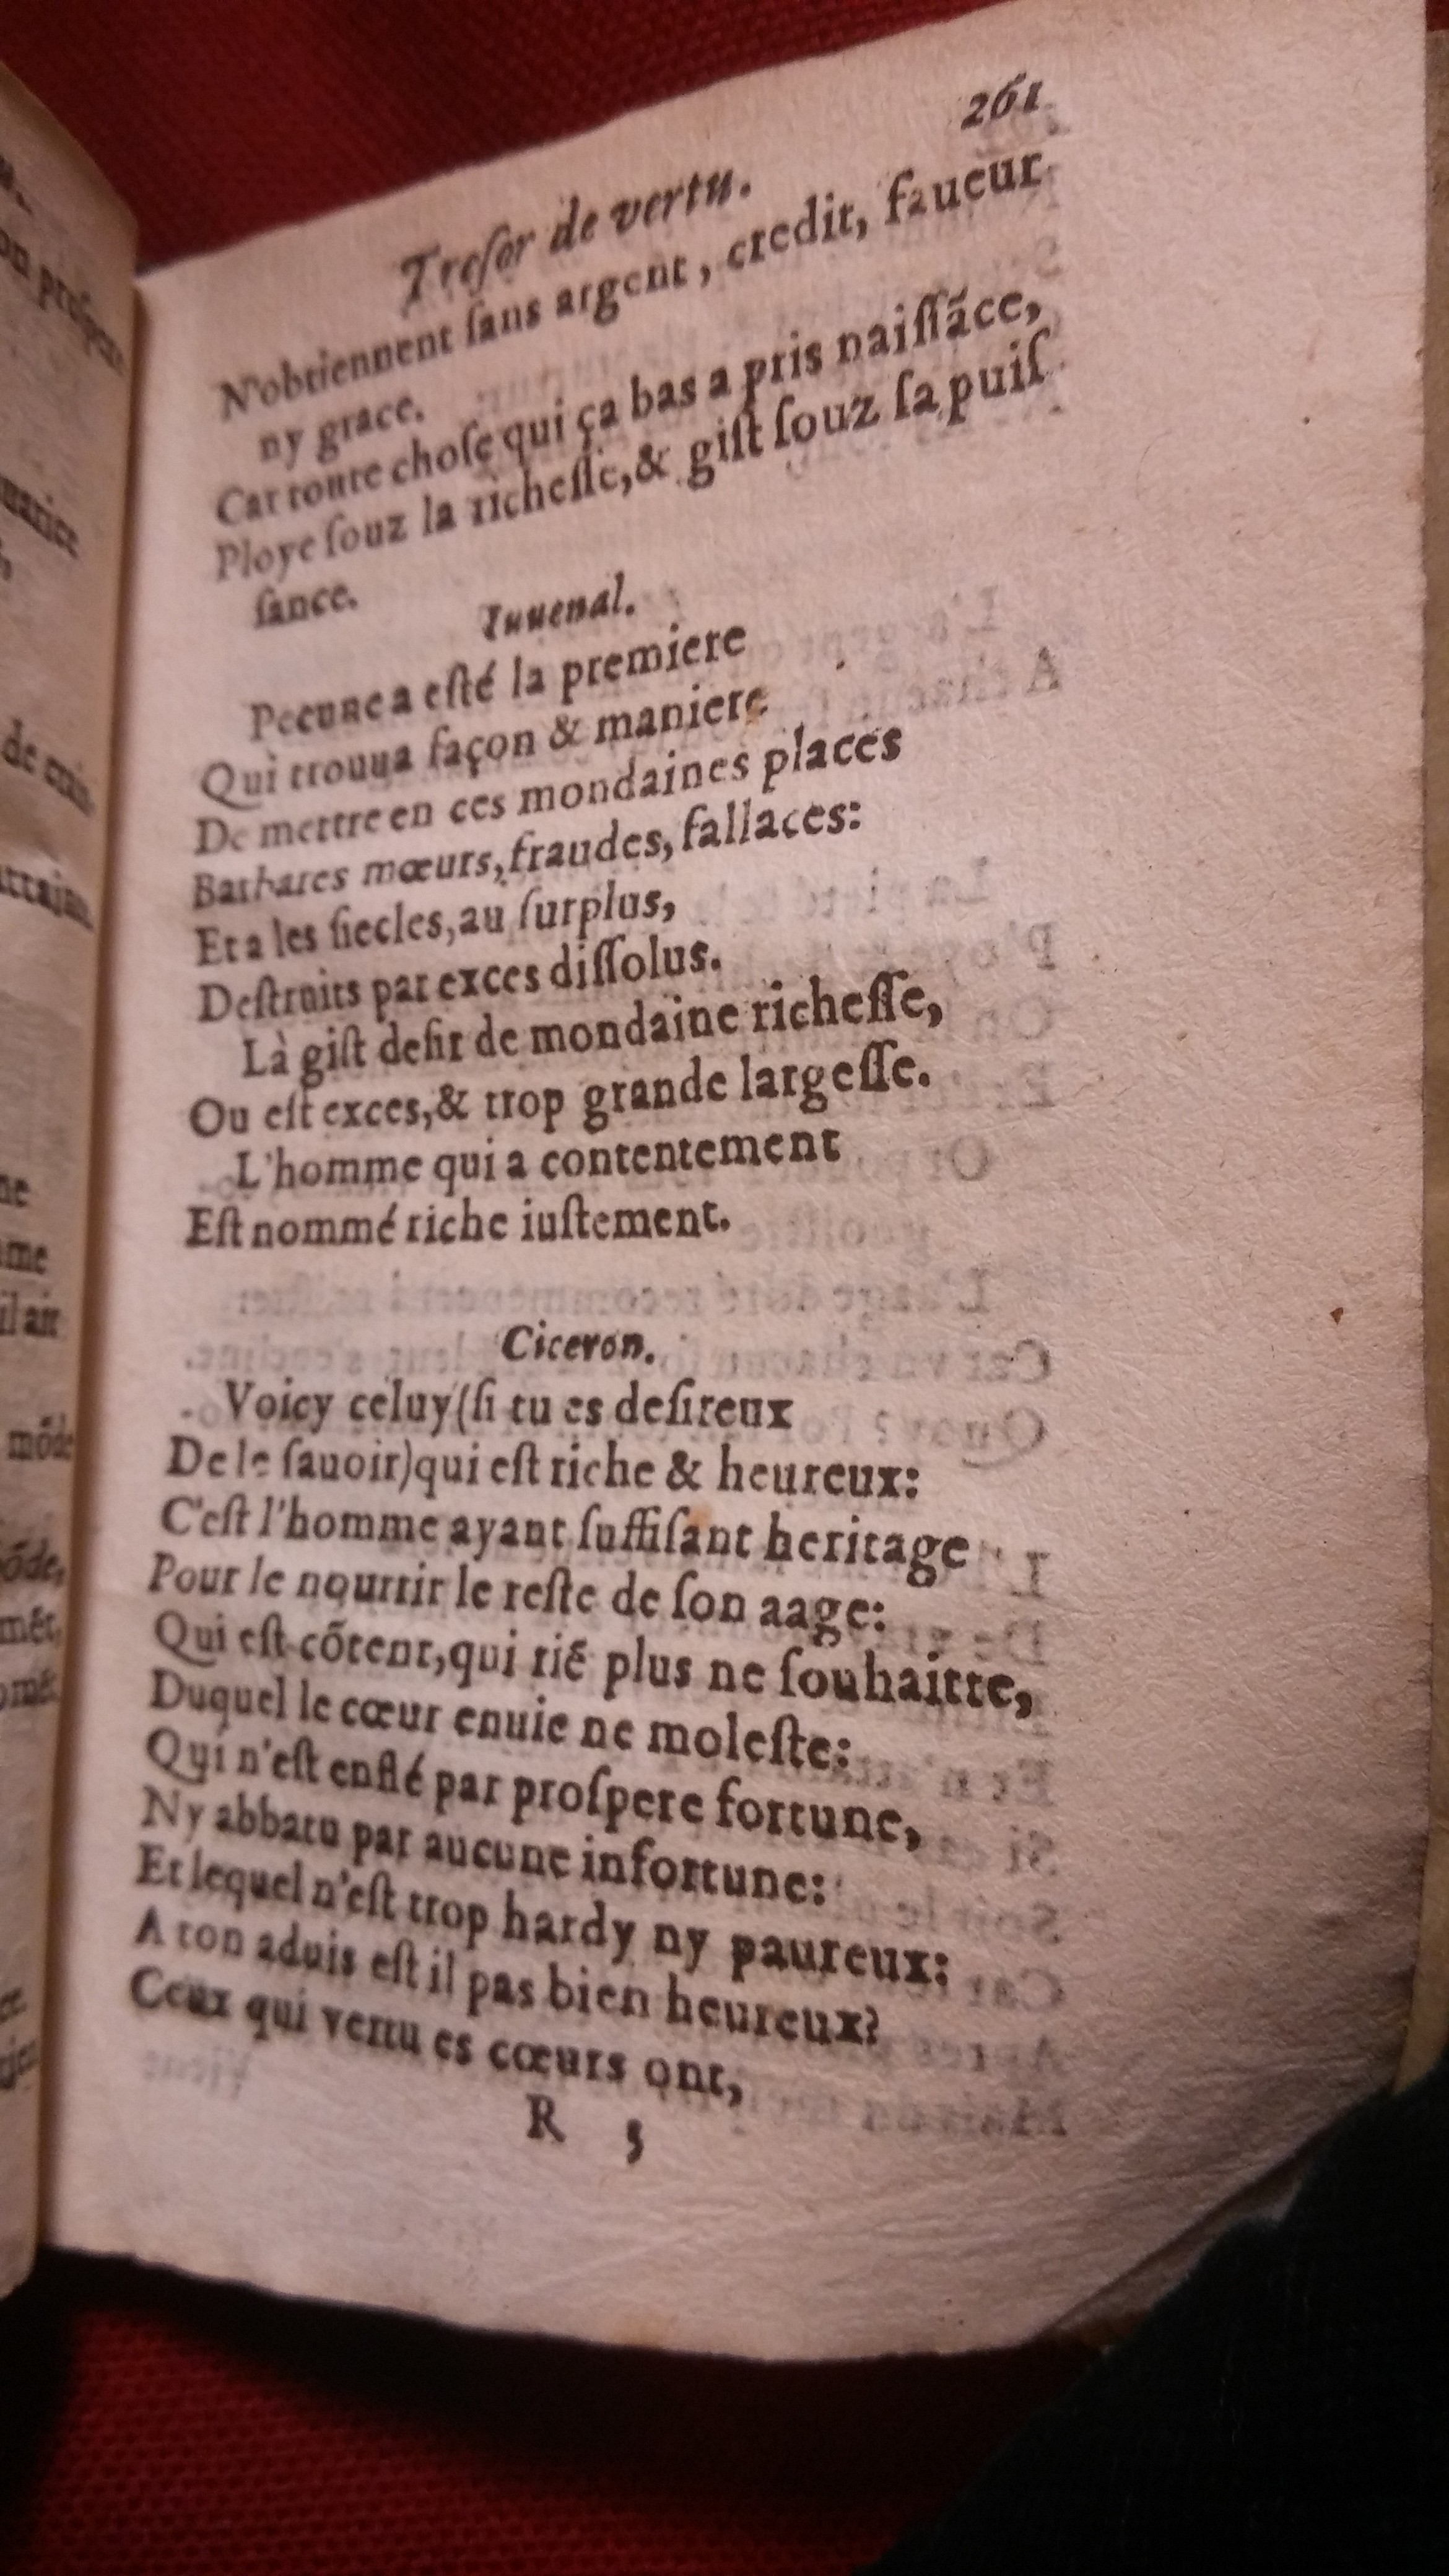 261
Treſor de vertu.
N'obtiennent ſans argent, credit, faueur
ny grace.
Car toute choſe qui ça bas a pris naiſſãce,
Ploye ſouz la richeſſe, & giſt ſouz ſa puiſ
ſance.
Iuuenal.
Pecune a eſté la premiere
Qui trouua façon & maniere
De mettre en ces mondaines places
Barbares mœurs, fraudes, fallaces:
Et a les ſiecles, au ſurplus,
Deſtruits par exces diſſolus.
Là giſt deſir de mondaine richeſſe,
Ou eſt exces, & trop grande largeſſe.
L'homme qui a contentement
Eſt nommé riche iuſtement.
Ciceron.
Voicy celuy (ſi tu es deſireux
De le ſauoir) qui eſt riche & heureux:
C'eſt l'homme ayant ſuffiſant heritage
Pour le nourrir le reſte de ſon aage:
Qui eſt cõtent, qui riẽ plus ne ſouhaitte,
Duquel le cœur enuie ne moleſte:
Qui n'eſt enflé par proſpere fortune,
Ny abbatu par aucune infortune:
Et lequel n'eſt trop hardy ny paureux:
A ton aduis eſt il pas bien heureux?
Ceux qui vertu es cœurs ont,
R 5